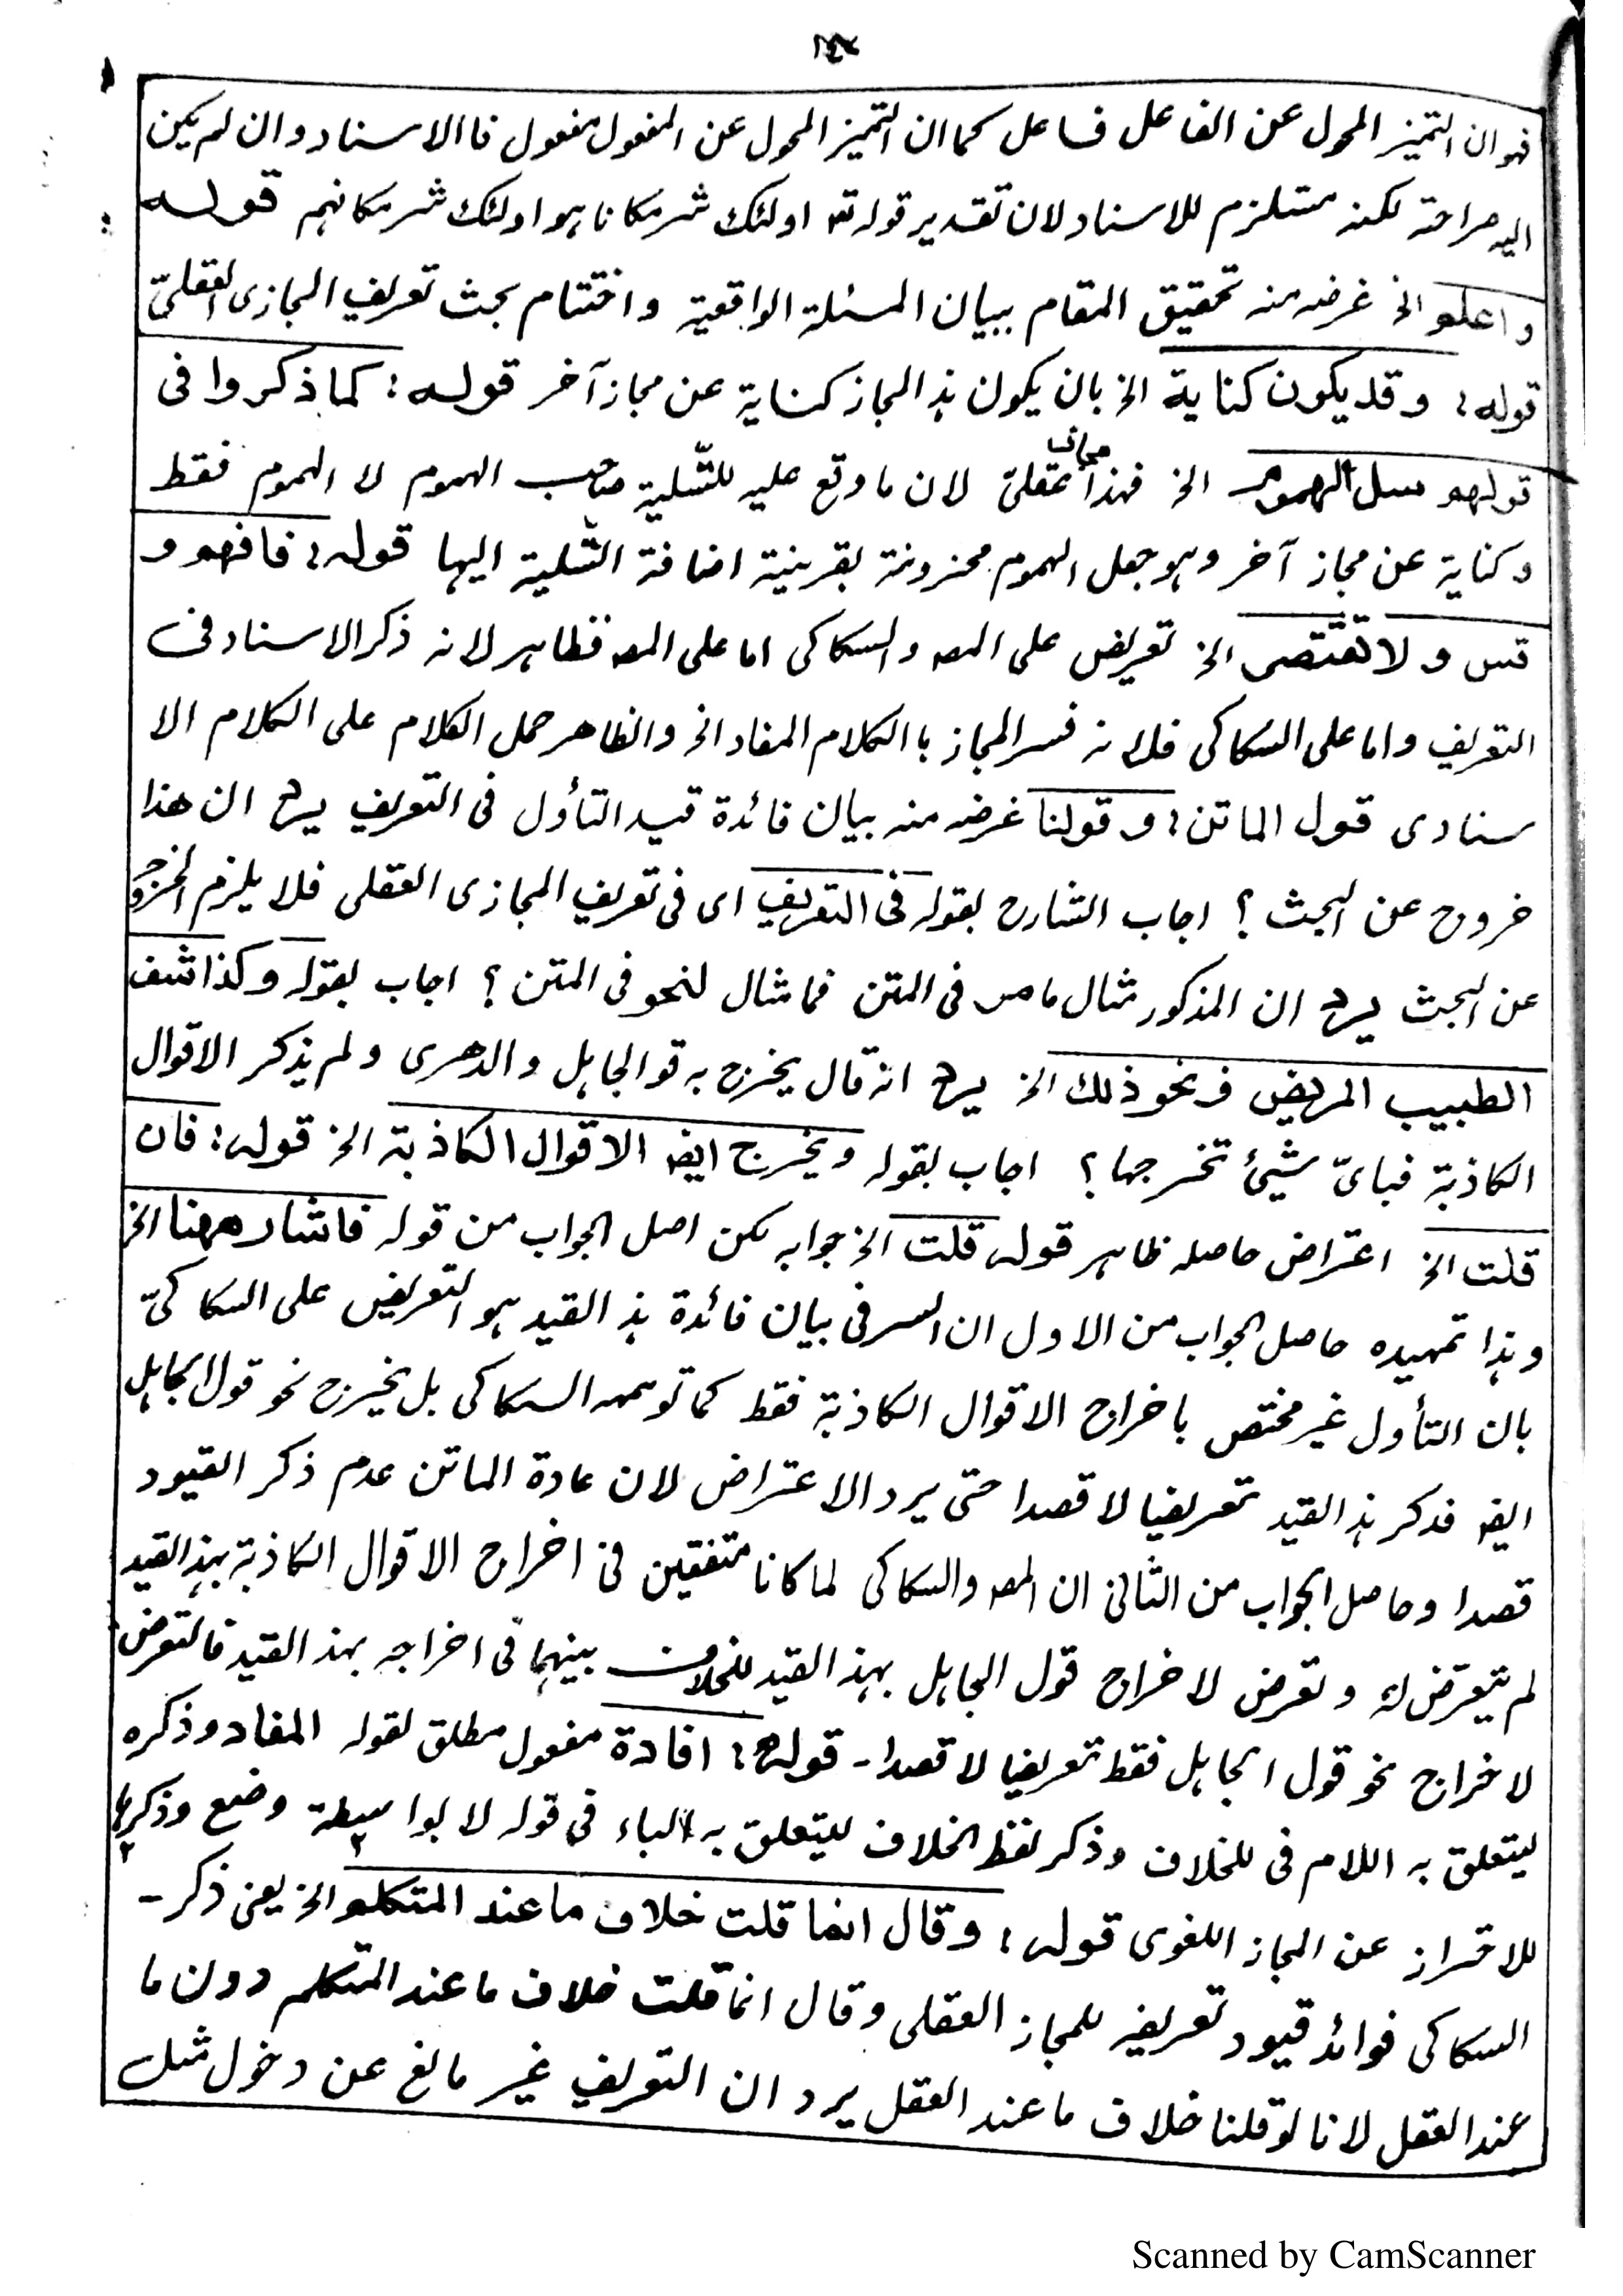 فهو ان التميز المحول عن الفاعل فاعل كما ان التميز المحول عن المفعول مفعول فا الاسناد وان لم يكن
اليه صراحة لكنه مستلزم للاسناد لان تقدير قوله تعه اولئك شر مكانا هو اولئك شر مكانهم قوله
واعلم الخ غرضه منه تحقيق المقام ببيان المسئلة الواقعية واختتام بحث تعريف المجازى العقلىّ
قوله: وقد يكون كناية الخ بان يكون هذ المجاز كناية عن مجاز آخر قوله: كما ذكروا فى
قولهم سل الهموم الخ فهذا مجاز عقلىّ لان ما وقع عليه للتّسلية صاحب الهموم لا الهموم فقط
وكناية عن مجاز آخر وهو جعل الهموم محزونة بقرينة اضافة التّسلية اليها قوله: فافهم و
قس و لا تقتصر الخ تعريض على المصـ والسكاكى اما على المصـ فظاهر لانه ذكر الاسناد فى
التعريف واما على السكاكى فلانه فسر المجاز با الكلام المفاد الخ والظاهر حمل الكلام على الكلام الا
سنادى قول الماتن: وقولنا غرضه منه بيان فائدة قيد التأول فى التعريف يرد ان هذا
خروج عن البحث؟ اجاب الشارح بقوله فى التعريف اى فى تعريف المجازى العقلى فلا يلزم الخروج
عن البحث يرد ان المذكور مثال ما مر فى المتن فما مثال لنحو فى المتن؟ اجاب بقوله وكذا شفى
الطبيب المريض فنحو ذلك الخ يرد انه قال يخرج به قو الجاهل والدهرى ولم يذكر الاقوال
الكاذبة فباىّ شيئ تخرجها؟ اجاب بقوله ويخرج ايضـ الاقوال الكاذبة الخ قوله: فان
قلت الخ اعتراض حاصله ظاهر قوله قلت الخ جوابه لكن اصل الجواب من قوله فاشار ههنا الخ
وهذا تمهيده حاصل الجواب من الاول ان السر فى بيان فائدة هذ القيد هو التعريض على السكاكىّ
بان التأول غير مختص باخراج الاقوال الكاذبة فقط كما توهمه السكاكى بل يخرج نحو قول الجاهل
ايضـ فذكر هذ القيد تعريضا لا قصدا حتى يرد الاعتراض لان عادة الماتن عدم ذكر القيود
قصدا وحاصل الجواب من الثانى ان المصـ والسكاكى لما كانا متفقين فى اخراج الاقوال الكاذبة بهذ القيد
لم يتعرّض له و تعرض لاخراج قول الجاهل بهذ القيد للخلاف بينهما فى اخراجه بهذ القيد فالتعرض
لاخراج نحو قول الجاهل فقط تعريضا لا قصدا - قوله: افادة مفعول مطلق لقوله المفاد وذكره
ليتعلق به اللام فى للخلاف وذكر لفظ الخلاف ليتعلق به الباء فى قوله لا بواسطة وضع وذكرها
للاحتراز عن المجاز اللغوى قوله: وقال انما قلت خلاف ما عند المتكلم الخ يعنى ذكر -
السكاكى فوائد قيود تعريفه للمجاز العقلى وقال انما قلت خلاف ما عند المتكلم دون ما
عند العقل لانا لو قلنا خلاف ما عند العقل يرد ان التعريف غير مانع عن دخول مثل
Scanned by CamScanner